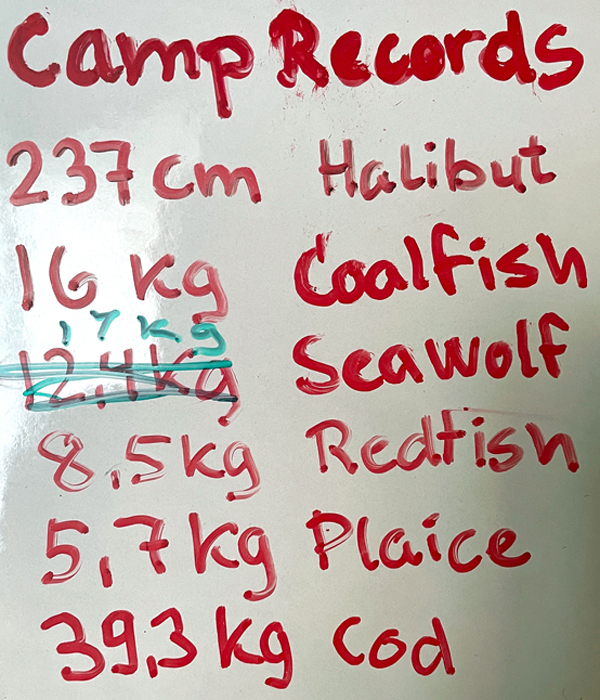 Camp Records
237 cm Halibut
16 kg Coalfish
17 kg
12,4 kg Seawolf
8,5 kg Redfish
5,7 kg Plaice
39,3 kg Cod